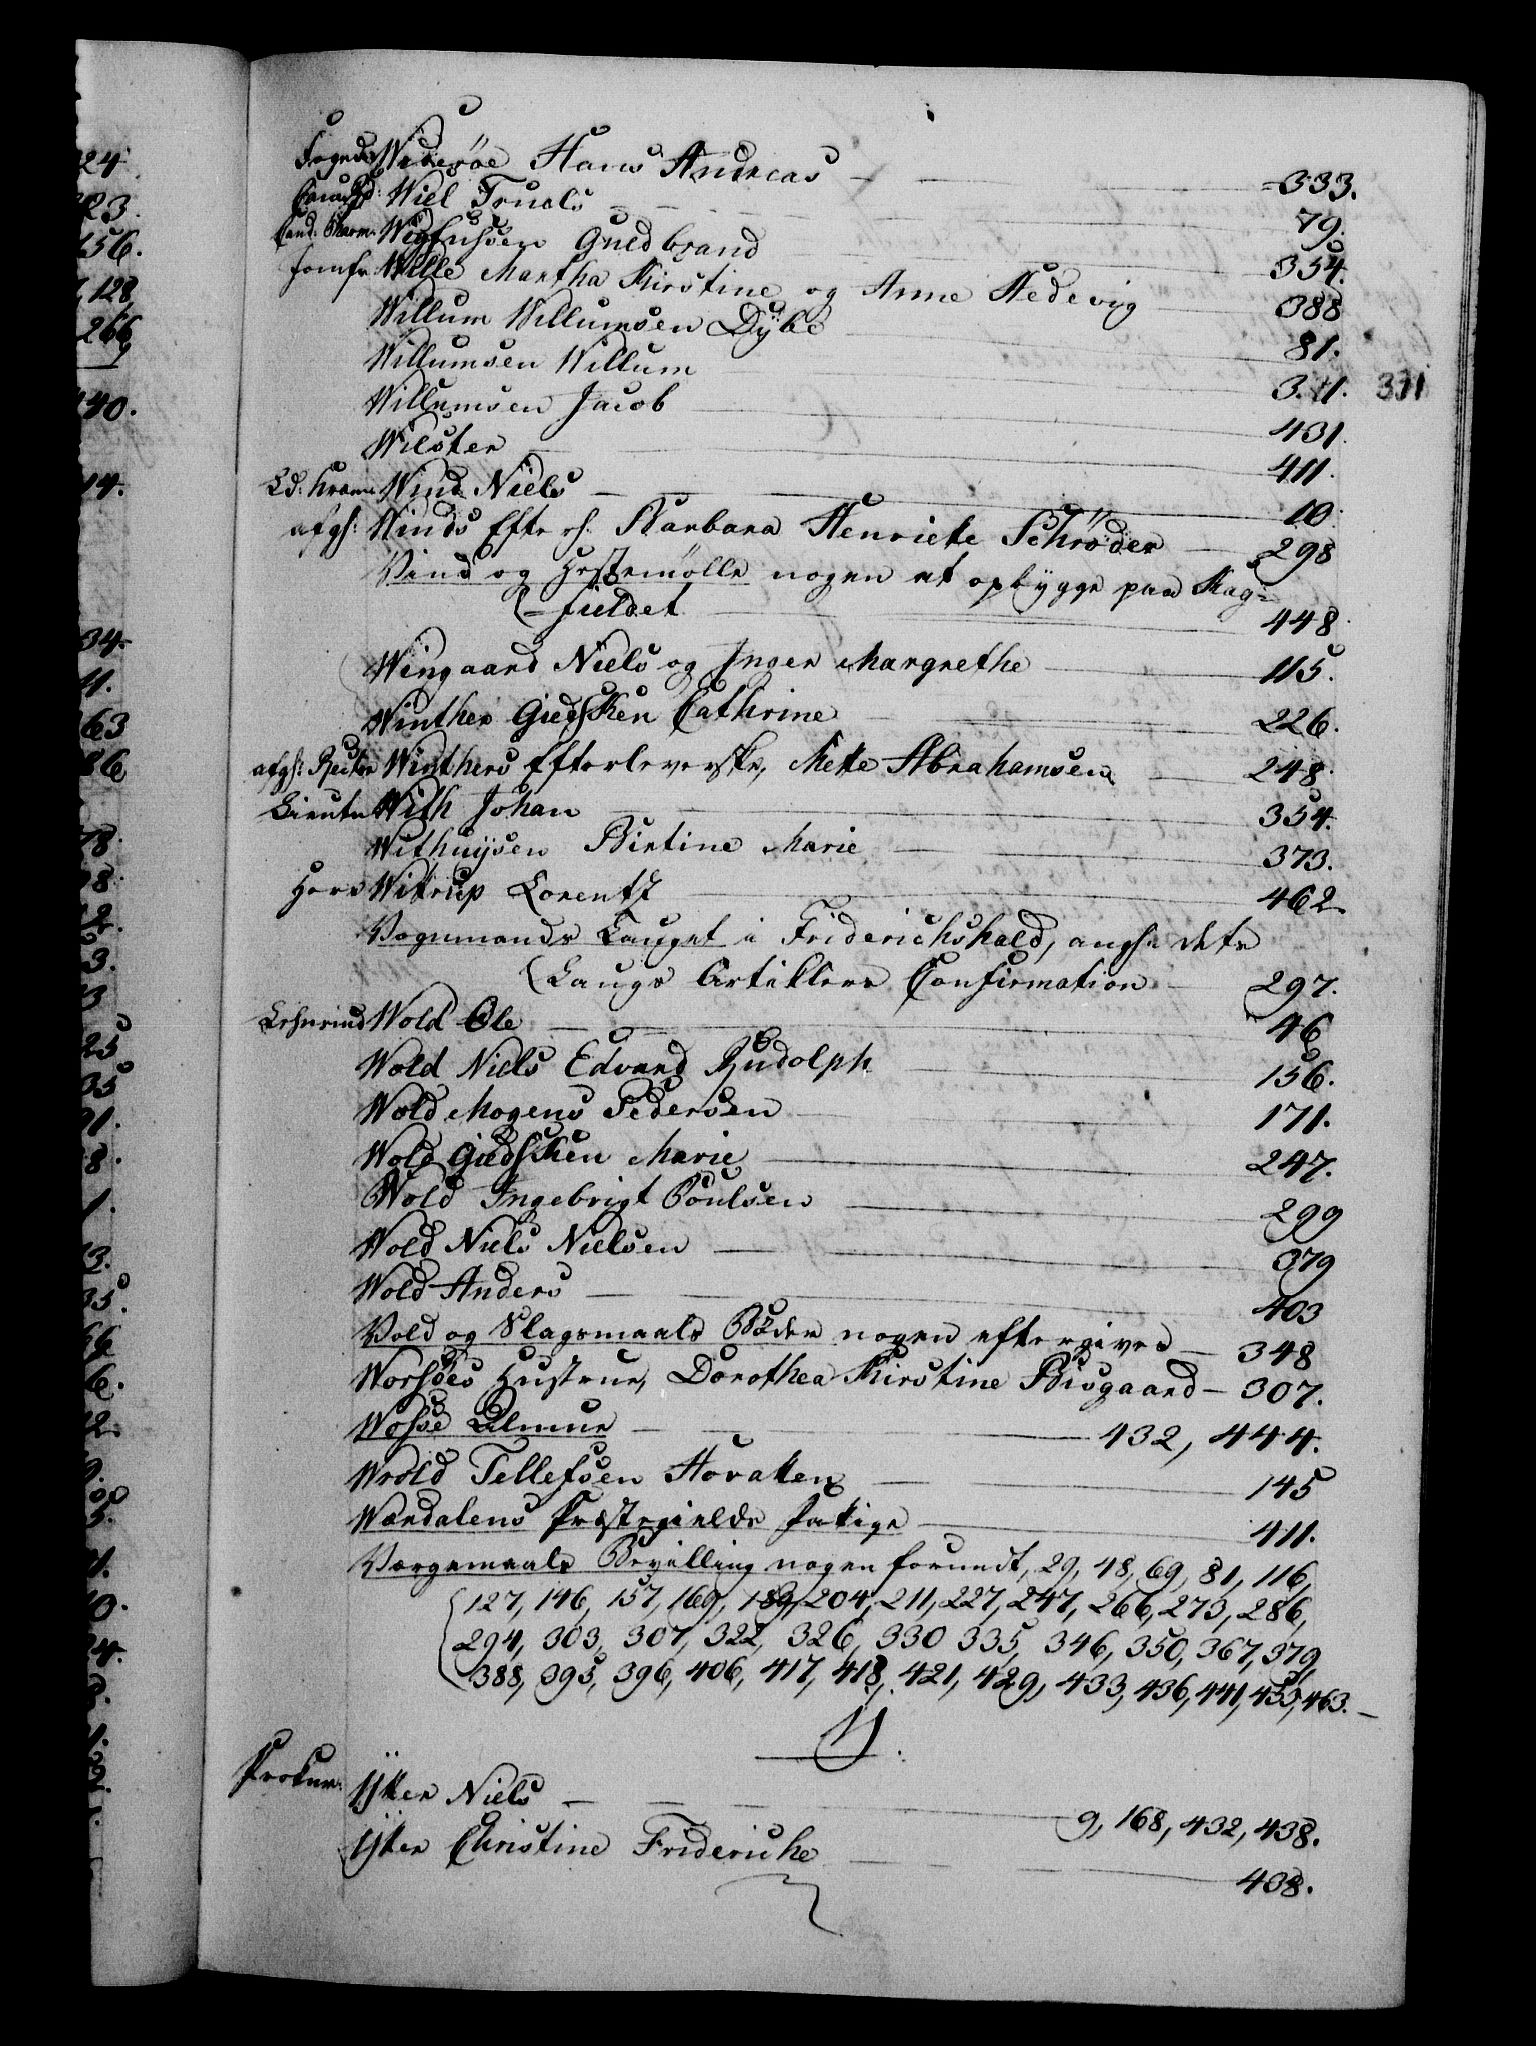 Fogeder Widerøe Hans Andreas — 333.
Wiel Truels — 79.
Cand: Wigfussen Guldbrand — 354.
Jomfr: Wille Martha Kirstine og Anne Hedevig 388
Willum Willumsen Dÿbe — 81.
Willumsen Willum — 311. 371
Willumsen Jacob — 431.
Wilster — 411.
Wind Niels — 10.
afgh: Winds Efterl: Barbara Henriette Schrøder — 298
Vind og Hestemølle nogen at opbygge paa Kag=
=fieldet — 448.
Wingaard Niels og Inger Margrethe — 115.
Winther Giedsken Cathrine — 226.
afgh: Rector Winthers Efterleverske, Mette Abrahamsen — 248.
Lieutn: With Johan — 354.
Withuÿsen Birtine Marie — 373.
Herr Witrup Lorentz — 462.
Vognmands Lauget i Friderichshald, angl: dets
Laugs Artiklers Confirmation — 297.
Wold Ole — 46
Wold Niels Edvard Rudolph — 156.
Wold Mogens Pedersen — 171.
Wold Giedsken Marie — 247.
Wold Ingebrigt Poulsen — 299
Wold Niels Nielsen — 379
Wold Anders — 403
Vold og Slagsmaals Bøder nogen eftergived — 348
Worsøes Hustrue, Dorothea Kirstine Bisgaard — 307.
Wosse — 432, 444.
Wrold Tellefsen Hovaken — 145
Wærdalens Præstegields Fattige — 411.
Værgemaals Bevilling nogen forundt, 29, 48, 69, 81, 116,
127, 146, 157, 169, 189, 204, 211, 227, 247, 266, 273, 286,
294, 303, 307, 322, 326, 330 335, 346, 350, 367, 379,
388, 395, 396, 406, 417, 418, 421, 429, 433, 436, 441, 453, 463. —
Y.
Prokur: Ytter Niels — 9, 168, 432, 438.
Ytter Christine Fridericke — 438.